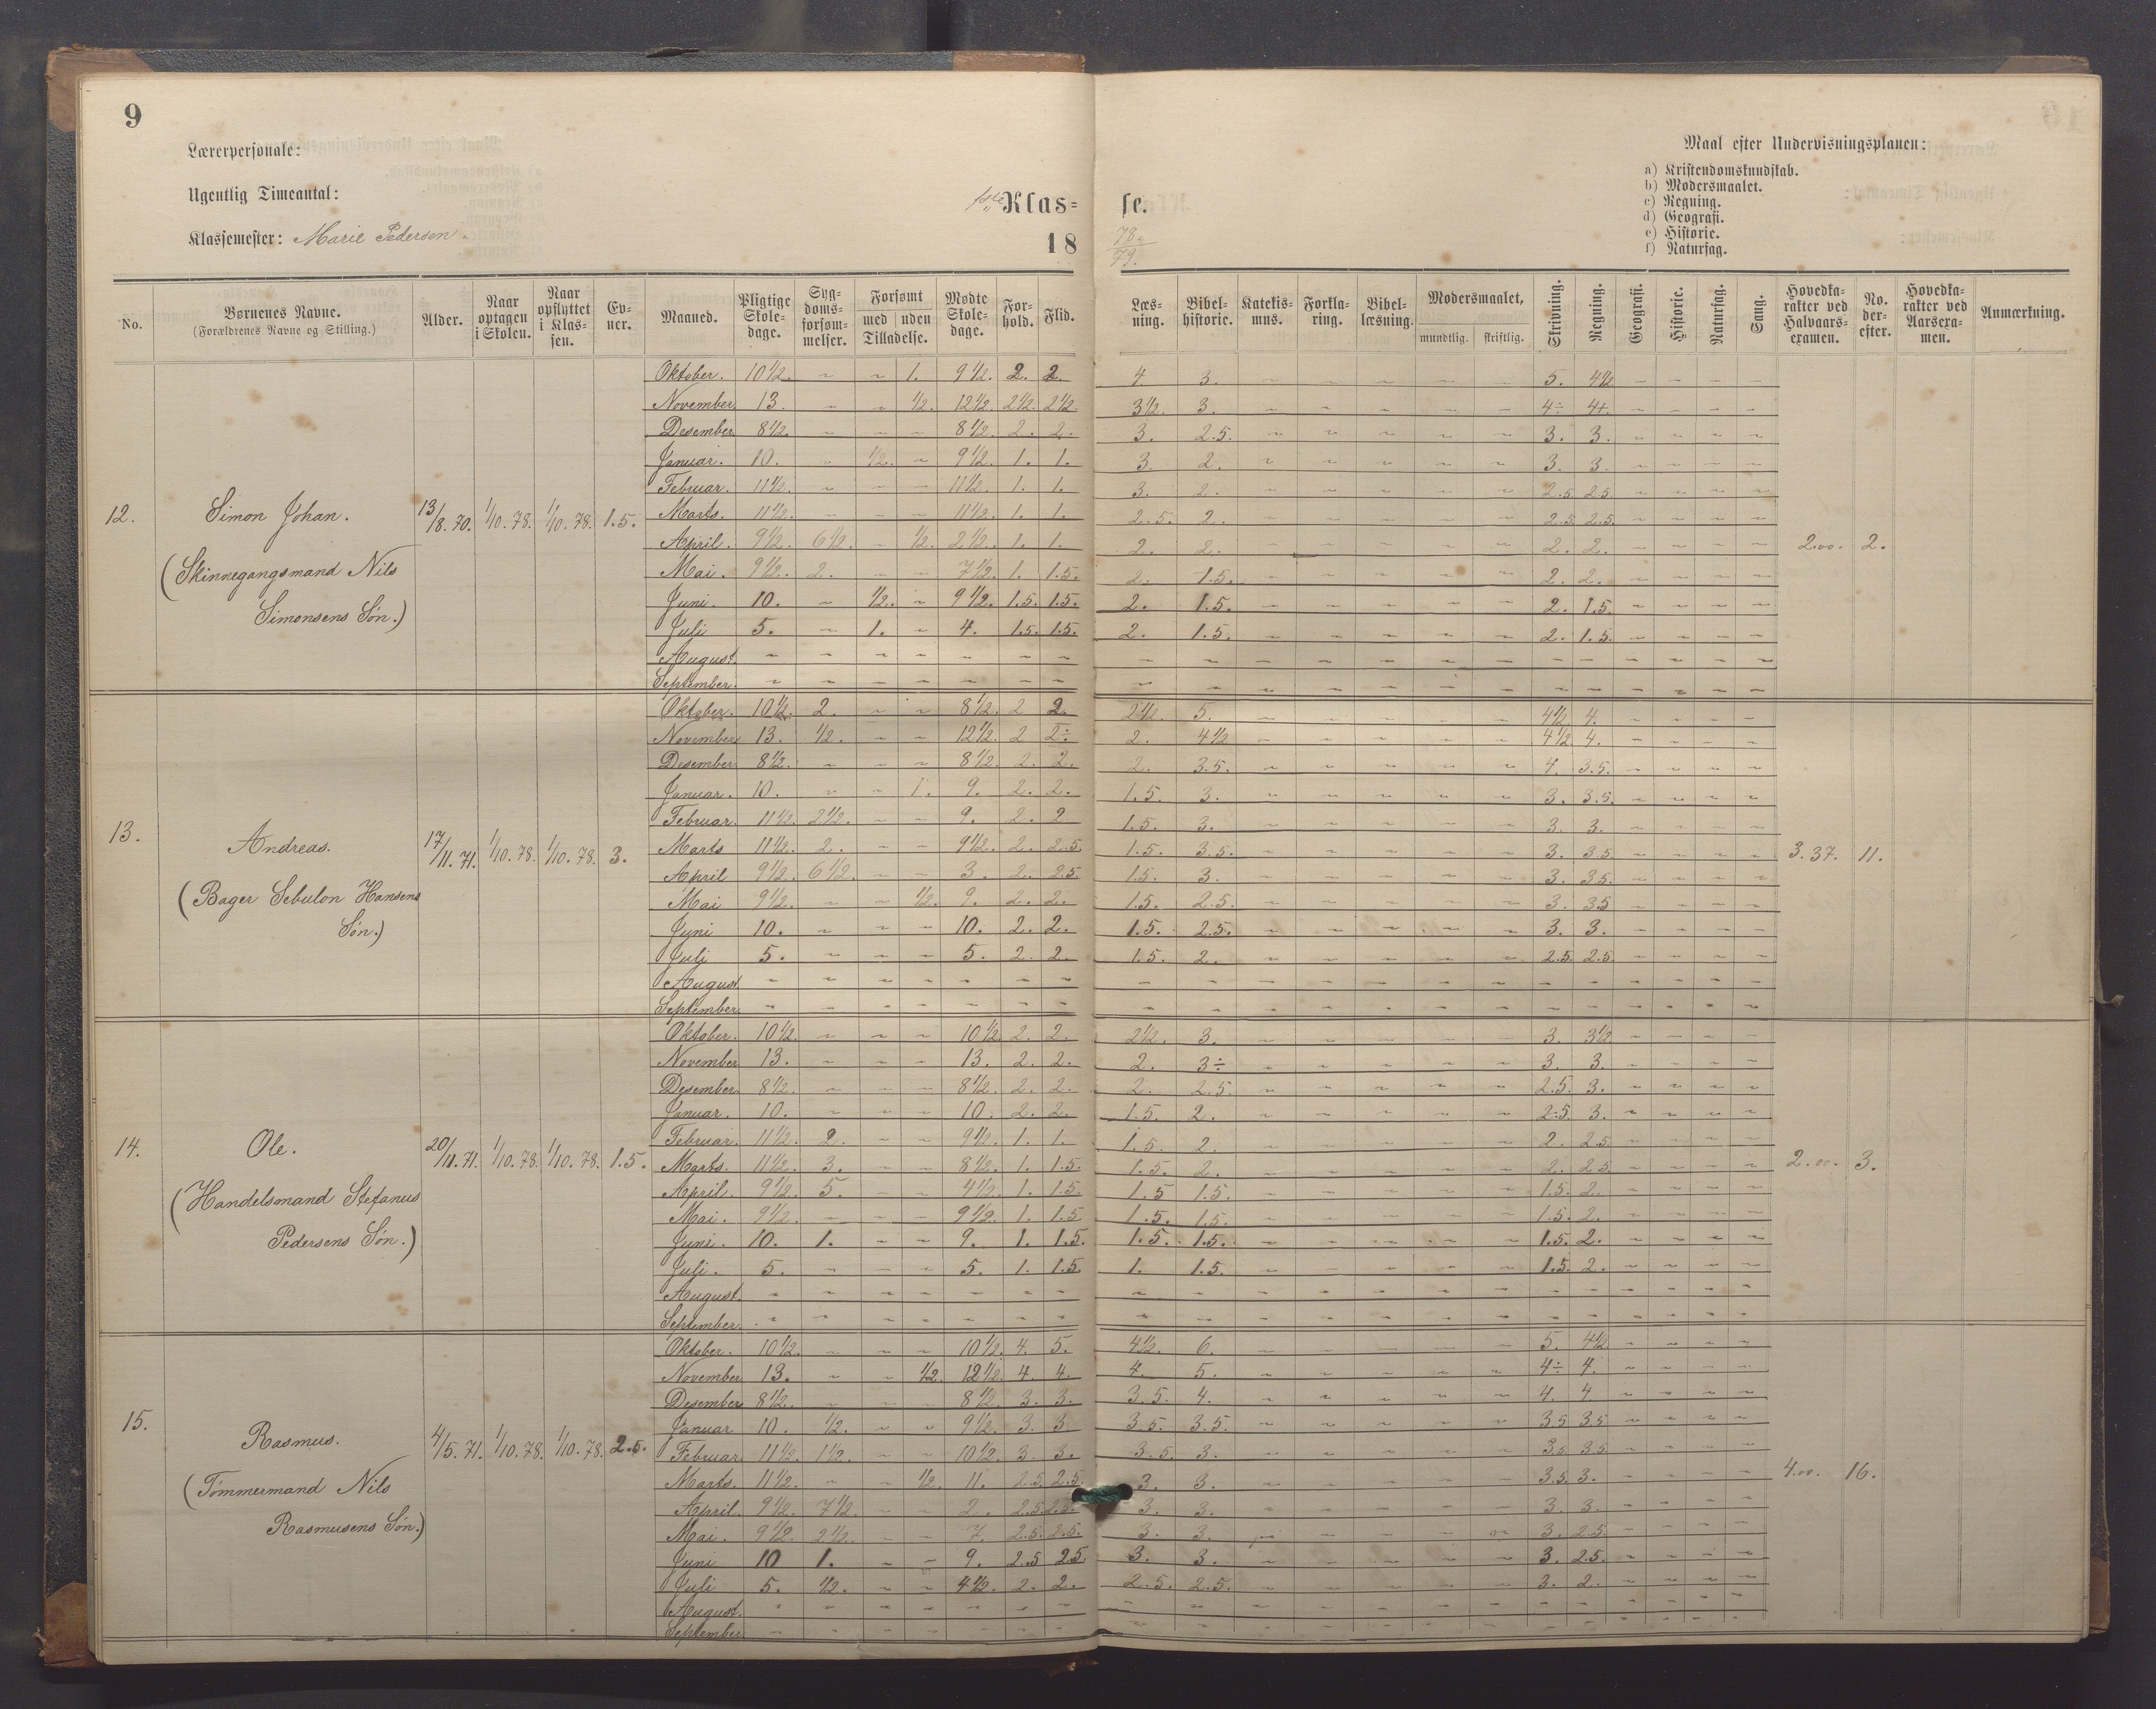 9
Lærerpersonale:
Ugentlig Timeantal:
Klassemester: Marie Pedersen.
1ste Klas= se.
18 78/79.
Maal efter Undervisningsplanen:
a) Kristendomskundskab.
b) Modersmaalet.
c) Regning.
d) Geografi.
e) Historie.
f) Naturfag.
No. | Børnenes Navne. (Forældrenes Navne og Stilling.) | Alder. | Naar optagen i Skolen. | Naar opflyttet i Klas-sen. | Ev-ner. | Maaned. | Pligtige Skole-dage. | Syg-doms-forsøm-melser. | Forsømt med uden Tilladelse. | Mødte Skole-dage. | For-hold. | Flid. | Læs-ning. | Bibel-historie. | Katekis-mus. | Forkla-ring. | Bibel-læsning. | Modersmaalet, mundtlig. skriftlig. | Skrivning. | Regning. | Geografi. | Historie. | Naturfag. | Sang. | Hovedka-rakter ved Halvaars-examen. | No. der-efter. | Hovedka-rakter ved Aarsexa-men. | Anmærkning.
12. Simon Johan. 13/8. 70. 1/10. 78. 1/10. 78. 1.5. 2.00. 2.
(Skinnegangsmand Nils
Simonsens Søn.)
Oktober. 10 1/2. ~ ~ 1. 9 1/2. 2. 2. 4 3. ~ ~ ~ ~ ~ 5. 4 1/2 ~ ~ ~ ~
November. 13. ~ ~ 1/2. 12 1/2. 2 1/2. 2 1/2. 3 1/2. 3. ~ ~ ~ ~ ~ 4÷ 4+. ~ ~ ~ ~
Desember. 8 1/2. ~ ~ ~ 8 1/2. 2. 2. 3. 2.5. ~ ~ ~ ~ ~ 3. 3. ~ ~ ~ ~
Januar. 10. ~ 1/2. ~ 9 1/2. 1. 1. 3. 2. ~ ~ ~ ~ ~ 3. 3. ~ ~ ~ ~
Februar. 11 1/2. ~ ~ ~ 11 1/2. 1. 1. 3. 2. ~ ~ ~ ~ ~ 2.5. 2.5 ~ ~ ~ ~
Marts. 11 1/2. ~ ~ ~ 11 1/2. 1. 1. 2.5. 2. ~ ~ ~ ~ ~ 2.5. 2.5. ~ ~ ~ ~
April. 9 1/2. 6 1/2. ~ 1/2. 2 1/2. 1. 1. 2. 2. ~ ~ ~ ~ ~ 2. 2. ~ ~ ~ ~
Mai. 9 1/2. 2. ~ ~ 7 1/2. 1. 1.5. 2. 1.5. ~ ~ ~ ~ ~ 2. 2. ~ ~ ~ ~
Juni. 10. ~ 1/2. ~ 9 1/2. 1.5. 1.5. 2. 1.5. ~ ~ ~ ~ ~ 2. 1.5. ~ ~ ~ ~
Juli 5. ~ 1. ~ 4. 1.5. 1.5. 2. 1.5. ~ ~ ~ ~ ~ 2. 1.5. ~ ~ ~ ~
August. ~ ~ ~ ~ ~ ~ ~ ~ ~ ~ ~ ~ ~ ~ ~ ~ ~ ~ ~ ~
September. ~ ~ ~ ~ ~ ~ ~ ~ ~ ~ ~ ~ ~ ~ ~ ~ ~ ~ ~ ~
13. Andreas. 17/11. 71. 1/10. 78. 1/10. 78. 3. 3.37. 11.
(Bager Sebulon Hansens
Søn.)
Oktober. 10 1/2. 2. ~ ~ 8 1/2. 2 2. 2 1/2. 5. ~ ~ ~ ~ ~ 4 1/2. 4. ~ ~ ~ ~
November 13. 1/2. ~ ~ 12 1/2. 2 2÷ 2. 4 1/2 ~ ~ ~ ~ ~ 4 1/2. 4. ~ ~ ~ ~
Desember 8 1/2. ~ ~ ~ 8 1/2. 2. 2. 2. 3.5. ~ ~ ~ ~ ~ 4. 3.5. ~ ~ ~ ~
Januar. 10. ~ ~ 1. 9. 2. 2. 1.5. 3. ~ ~ ~ ~ ~ 3. 3.5. ~ ~ ~ ~
Februar. 11 1/2. 2 1/2. ~ ~ 9. 2. 2 1.5. 3. ~ ~ ~ ~ ~ 3. 3. ~ ~ ~ ~
Marts 11 1/2. 2. ~ ~ 9 1/2. 2. 2.5. 1.5. 3.5. ~ ~ ~ ~ ~ 3. 3.5. ~ ~ ~ ~
April 9 1/2. 6 1/2. ~ ~ 3. 2. 2.5. 1.5. 3. ~ ~ ~ ~ ~ 3. 3.5. ~ ~ ~ ~
Mai 9 1/2. ~ ~ 1/2. 9. 2. 2. 1.5. 2.5. ~ ~ ~ ~ ~ 3. 3.5 ~ ~ ~ ~
Juni 10. ~ ~ ~ 10. 2. 2. 1.5. 2.5. ~ ~ ~ ~ ~ 3. 3. ~ ~ ~ ~
Juli 5. ~ ~ ~ 5. 2. 2. 1.5. 2. ~ ~ ~ ~ ~ 2.5. 2.5. ~ ~ ~ ~
August. ~ ~ ~ ~ ~ ~ ~ ~ ~ ~ ~ ~ ~ ~ ~ ~ ~ ~ ~ ~
September. ~ ~ ~ ~ ~ ~ ~ ~ ~ ~ ~ ~ ~ ~ ~ ~ ~ ~ ~ ~
14. Ole. 20/11. 71. 1/10. 78. 1/10. 78. 1.5. 2.00. 3.
(Handelsmand Stefanus
Pedersens Søn.)
Oktober. 10 1/2. ~ ~ ~ 10 1/2. 2. 2. 2 1/2. 3. ~ ~ ~ ~ ~ 3. 3 1/2 ~ ~ ~ ~
November 13. ~ ~ ~ 13. 2. 2. 2. 3÷ ~ ~ ~ ~ ~ 3. 3. ~ ~ ~ ~
Desember 8 1/2. ~ ~ ~ 8 1/2. 2. 2. 2. 2.5. ~ ~ ~ ~ ~ 2.5. 3. ~ ~ ~ ~
Januar. 10. ~ ~ ~ 10. 2. 2. 1.5. 2. ~ ~ ~ ~ ~ 2.5. 3. ~ ~ ~ ~
Februar. 11 1/2. 2. ~ ~ 9 1/2. 1. 1. 1.5. 2. ~ ~ ~ ~ ~ 2. 2.5 ~ ~ ~ ~
Marts. 11 1/2. 3. ~ ~ 8 1/2. 1. 1.5. 1.5. 2. ~ ~ ~ ~ ~ 2. 2.5. ~ ~ ~ ~
April. 9 1/2. 5. ~ ~ 4 1/2. 1. 1.5. 1.5 1.5. ~ ~ ~ ~ ~ 1.5. 2. ~ ~ ~ ~
Mai. 9 1/2. ~ ~ ~ 9 1/2. 1. 1.5 1.5. 1.5. ~ ~ ~ ~ ~ 1.5. 2. ~ ~ ~ ~
Juni. 10. 1. ~ ~ 9. 1. 1.5. 1.5. 1.5. ~ ~ ~ ~ ~ 1.5. 2. ~ ~ ~ ~
Juli. 5. ~ ~ ~ 5. 1. 1.5. 1. 1.5. ~ ~ ~ ~ ~ 1.5. 2. ~ ~ ~ ~
August. ~ ~ ~ ~ ~ ~ ~ ~ ~ ~ ~ ~ ~ ~ ~ ~ ~ ~ ~ ~
September. ~ ~ ~ ~ ~ ~ ~ ~ ~ ~ ~ ~ ~ ~ ~ ~ ~ ~ ~ ~
15. Rasmus. 4/5. 71. 1/10. 78. 1/10. 78. 2.5. 4.00. 16.
(Tømmermand Nils
Rasmusens Søn.)
Oktober. 10 1/2. ~ ~ ~ 10 1/2. 4. 5. 4 1/2. 6. ~ ~ ~ ~ ~ 5. 4 1/2 ~ ~ ~ ~
November 13. ~ ~ 1/2. 12 1/2. 4. 4. 4. 5. ~ ~ ~ ~ ~ 4÷ 4. ~ ~ ~ ~
Desember 8 1/2. ~ ~ ~ 8 1/2. 3. 3. 3.5. 4. ~ ~ ~ ~ ~ 4. 4 ~ ~ ~ ~
Januar 10. 1/2. ~ ~ 9 1/2. 3. 3. 3.5. 3.5. ~ ~ ~ ~ ~ 3.5 3.5 ~ ~ ~ ~
Februar 11 1/2. 1 1/2. ~ ~ 10 1/2. 3. 3. 3.5. 3. ~ ~ ~ ~ ~ 3.5 3.5 ~ ~ ~ ~
Marts. 11 1/2. ~ ~ 1/2. 11. 2.5. 2.5. 3. 3. ~ ~ ~ ~ ~ 3.5. 3. ~ ~ ~ ~
April. 9 1/2. 7 1/2. ~ ~ 2. 2.5. 2.5. 3. 3. ~ ~ ~ ~ ~ 3. 3. ~ ~ ~ ~
Mai. 9 1/2. 2 1/2. ~ ~ 7. 2.5. 2.5. 3. 3. ~ ~ ~ ~ ~ 3. 2.5. ~ ~ ~ ~
Juni 10 1. ~ ~ 9. 2.5 2.5. 3. 3. ~ ~ ~ ~ ~ 3. 2.5. ~ ~ ~ ~
Juli 5. 1/2. ~ ~ 4 1/2. 2. 2. 2.5. 2.5. ~ ~ ~ ~ ~ 3. 2. ~ ~ ~ ~
August. ~ ~ ~ ~ ~ ~ ~ ~ ~ ~ ~ ~ ~ ~ ~ ~ ~ ~ ~ ~
September ~ ~ ~ ~ ~ ~ ~ ~ ~ ~ ~ ~ ~ ~ ~ ~ ~ ~ ~ ~